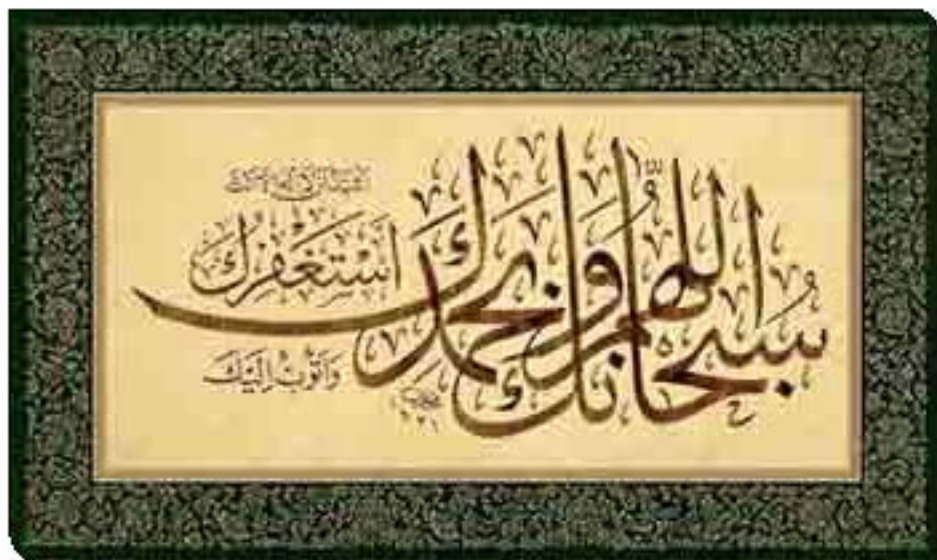 سُبْحَانَكَ اللّٰهُمَّ وَبِحَمْدِكَ
أَشْهَدُ أَنْ لَا إِلٰهَ إِلَّا أَنْتَ
أَسْتَغْفِرُكَ
وَأَتُوبُ إِلَيْكَ